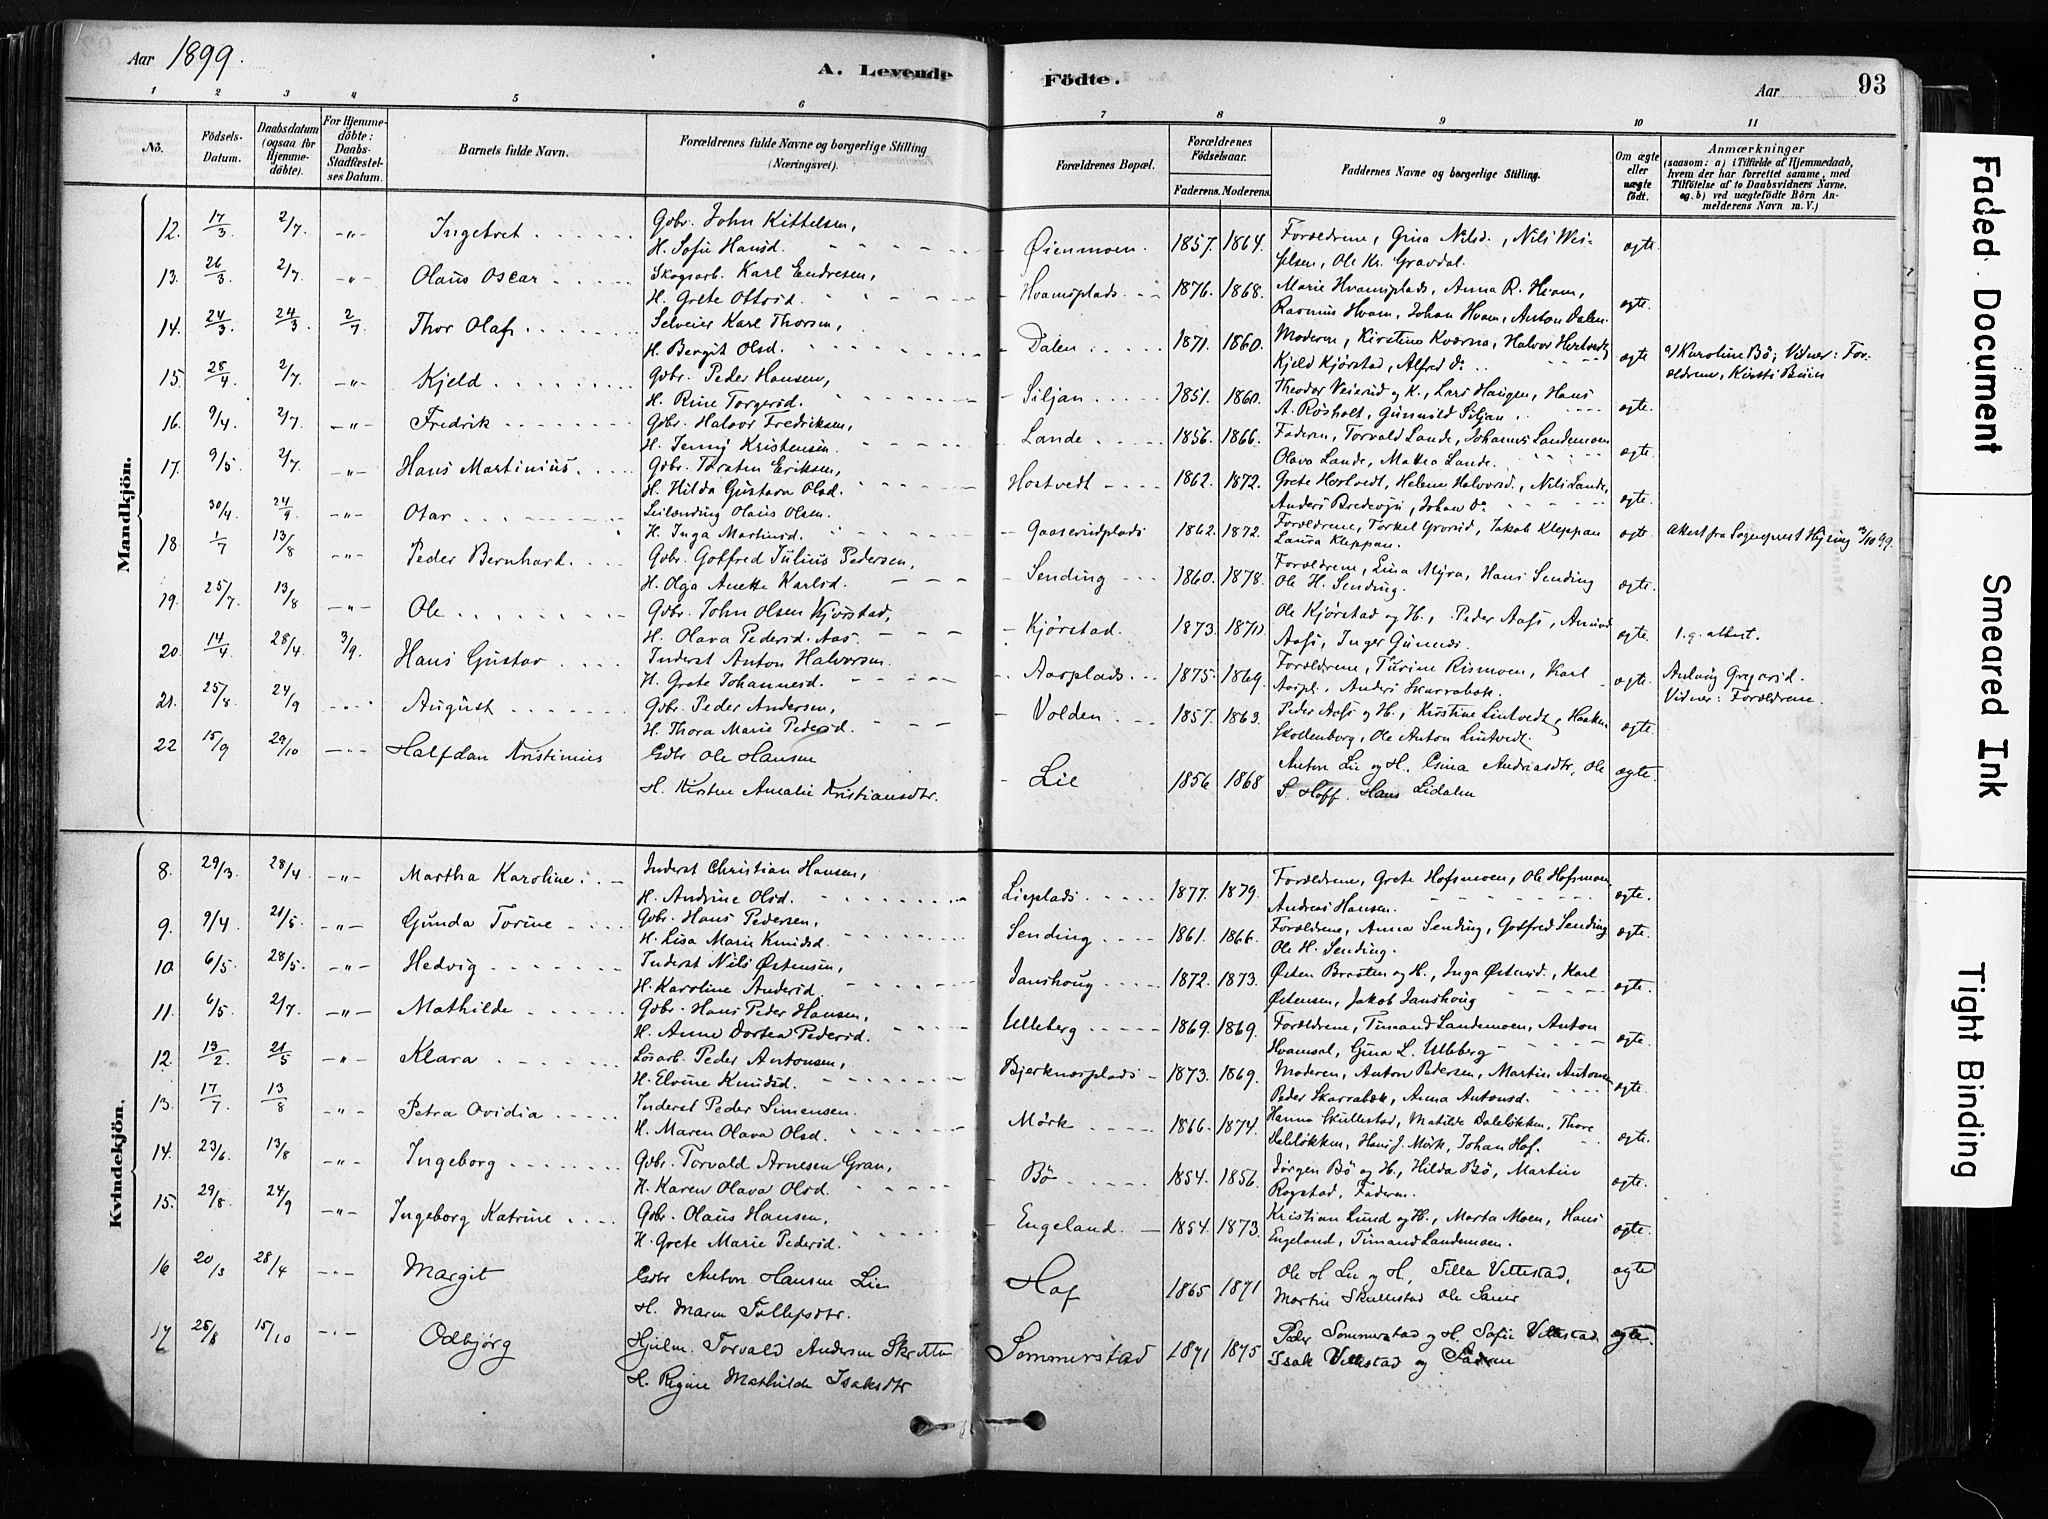 Aar 1899.
A. Levende Födte.
Aar 93
1 2 3 4 5 6 7 8 9 10 11
No.
Födsels-Datum.
Daabsdatum (ogsaa för Hjemme-döbte).
For Hjemme-döbte: Daabs-Stadfæstel-ses Datum.
Barnets fulde Navn.
Forældrenes fulde Navne og borgerlige Stilling (Næringsvei).
Forældrenes Bopæl.
Forældrenes Födselsaar.
Faderens. Moderens.
Faddernes Navne og borgerlige Stilling.
Om ægte eller uægte födt.
Anmærkninger
(saasom: a) i Tilfælde af Hjemmedaab, hvem der har forrettet samme, med Tilföielse af to Daabsvidners Navne, og b) ved uægtefödte Börn An-melderens Navn m. V.)
Mandkjön.
12. 17/3 2/7 -"- Ingebret Gbr. John Kittelsen,
H. Sofie Hansd. Øienmoen 1857. 1864. Forældrene, Gina Nilsd., Nils
Ole Kr. Gravdal. ægte.
13. 26/3 2/7 -"- Olaus Oscar Skogsarb. Karl Endresen,
H. Grete Ottosd. Hvamsplads 1876. 1868. Marie Hvamsplads, Anna R. Hvam,
Rasmus Hvam, Johan Hvam, Anton Dalen. ægte.
14. 24/3 24/3 2/7 Thor Olaf Selveier Karl Thorsen,
H. Bergit Olsd. Dalen 1871. 1860. Moderen, Kirstine Kværna, Halvor
Kjeld Kjørstad, Alfred Do. ægte a) Karoline Bö; Vidner: For-
ældrene, Kirsti
15. 28/4 2/7 -"- Kjeld Gbr. Peder Hansen,
H. Rine Torgersd. Siljan 1851. 1860. Theodor og K., Lars Haugen, Hans
A. Rösholt, Gunnild Siljan. ægte.
16. 9/4 2/7 -"- Fredrik Gbr. Halvor Fredriksen,
H. Jenny Kristensen Lande 1856. 1866. Faderen, Torvald Lande, Johannes Landemoen
Olava Lande, Mattea Lande. ægte.
17. 9/5 2/7 -"- Hans Martinius Gbr. Torsten Eriksen,
H. Hilda Gustava Olsd. Hostvedt 1862. 1872. Grete Hostvedt, Helene Halvorsd., Nils Lande,
Anders, Johan Do ægte.
30/4 24/9 -"- Otar Leilending Olaus Olsen.
H. Inga Martinsd. Gaaserudplads 1862. 1872. Forældrene, Torkel, Jakob Kleppan
Laura Kleppan. ægte Attest fra Sognepræst 3/10 99.
18. 1/7 13/8 -"- Peder Bernhard Gbr. Gotfred Julius Pedersen,
H. Olga Anette Karlsd. Sending 1860. 1878. Forældrene, Lina Myra, Hans Sending
Ole H. Sending. ægte.
19. 25/7 13/8 -"- Ole Gbr. John Olsen Kjørstad,
H. Olava Pedersd. Aas Kjørstad. 1873. 1870. Ole Kjørstad og H., Peder Aass,
Aass, Inger ægte. 1. g. attest.
20. 14/4 28/4 3/9. Hans Gustav Inderst Anton Halvorsen
H. Grete Johannesd. Aasplads 1875. 1869. Forældrene, Turine Rismoen, Karl
Aaspl., Anders Skarrabæk. ægte. Gregersd.
Vidner: Forældrene.
21. 25/8 24/9 August Gbr. Peder Andersen,
H. Thora Marie Pedersd. Volden 1857. 1863. Peder Aass og H., Kristine Lintvedt, Haaken
Skollenborg, Ole Anton Lintvedt. ægte.
22 15/9 29/10 -"- Halfdan Kristinius Gdbr Ole Hansen
H. Kirsten Amalie Kristiansdtr. Lie 1856 1868 Anton Lie og H., Gsina Andriasdtr, Ole
S. Hoff. Hans Lidalen ægte.
Kvindekjön.
8. 29/3 28/4 -"- Martha Karoline Inderst Christian Hansen,
H. Andrine Olsd. Lieplads 1877. 1879. Forældrene, Grete Hofsmoen, Ole Hofsmoen
Andreas Hansen. ægte.
9. 9/4 21/5 -"- Gunda Torine Gbr. Hans Pedersen,
H. Lisa Marie Knudsd. Sending 1861. 1866. Forældrene, Anna Sending, Gotfred Sending
Ole H. Sending. ægte.
10. 6/5 28/5. -"- Hedvig Inderst Nils Østensen,
H. Karoline Andersd. Janshoug 1872. 1873. Østen Bræsten og H., Inga Østensd., Karl
Østensen, Jakob Janshoug ægte.
11. 6/5 2/7 -"- Mathilde Gbr. Hans Peder Hansen,
H. Anne Dortea Pedersd. Ulleberg 1869. 1869. Forældrene, Timand Landemoen, Anton
Hvamsal, Gina L. Ulleberg ægte.
12. 13/2 21/5 -"- Klara Lösarb. Peder Antonsen,
H. Elvine Knudsd. Bjerknæsplads 1873. 1869. Moderen, Anton Pedersen, Martin Antonsen
Peder Skarrabæk, Anna Antonsd. ægte
13. 17/7 13/8 -"- Petra Ovidia Inderst Peder Simensen.
H. Maren Olava Olsd. Mörk 1866. 1874. Hanna Skullestad, Matilde Daleløkken, Thore
Daleløkken, Hans J. Mörk, Johan Hof. ægte.
14. 23/6 13/8 -"- Ingeborg Gbr. Torvald Arnesen Gran,
H. Karen Olava Olsd. Bö 1854. 1856. Jörgen Bö og H., Hilda Bö, Martin
Rogstad, Faderen. ægte.
15. 29/8 24/9 -"- Ingeborg Katrine Gbr. Olaus Hansen,
H. Grete Marie Pedersd. Engeland. 1854. 1873. Kristian Lund og H., Marta Moen, Hans
Engeland, Timand Landemoen. ægte.
16 20/3 28/4 -"- Margit Gdbr Anton Hansen Lie
H. Maren Tollefsdtr. Hof 1865 1871 Ole H Lie og H, Silla Villestad,
Martin Skullestad Ole ægte
17 25/8 15/10 -"- Odbjörg Hjulm. Torvald Andersen
H. Regine Mathilde Isaksdtr Sommerstad 1871 1875 Peder Sommerstad og H. Sofie Villestad
Isak Villestad og Faderen ægte.
Faded Document
Smeared Ink
Tight Binding